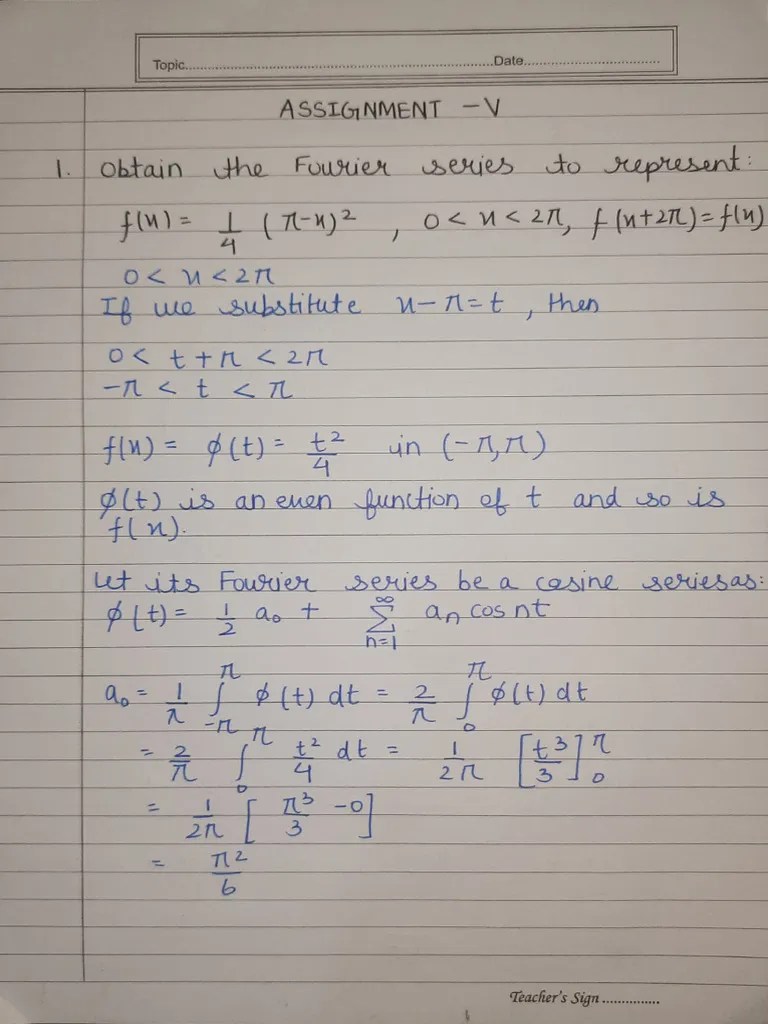 Topic..........................................................................Date...................................
ASSIGNMENT - V
1. Obtain the Fourier series to represent:
f(x) = 1/4 (π-x)², 0 < x < 2π, f(x+2π) = f(x)
0 < x < 2π
If we substitute x - π = t, then
0 < t + π < 2π
-π < t < π
f(x) = ϕ(t) = t²/4 in (-π, π)
ϕ(t) is an even function of t and so is
f(x).
Let its Fourier series be a cosine series as:
ϕ(t) = 1/2 a₀ + ∑_{n=1}^{∞} aₙ cos nt
a₀ = 1/π ∫_{-π}^{π} ϕ(t) dt = 2/π ∫_{0}^{π} ϕ(t) dt
= 2/π ∫_{0}^{π} t²/4 dt = 1/2π [t³/3]_{0}^{π}
= 1/2π [π³/3 - 0]
= π²/6
Teacher's Sign ...............